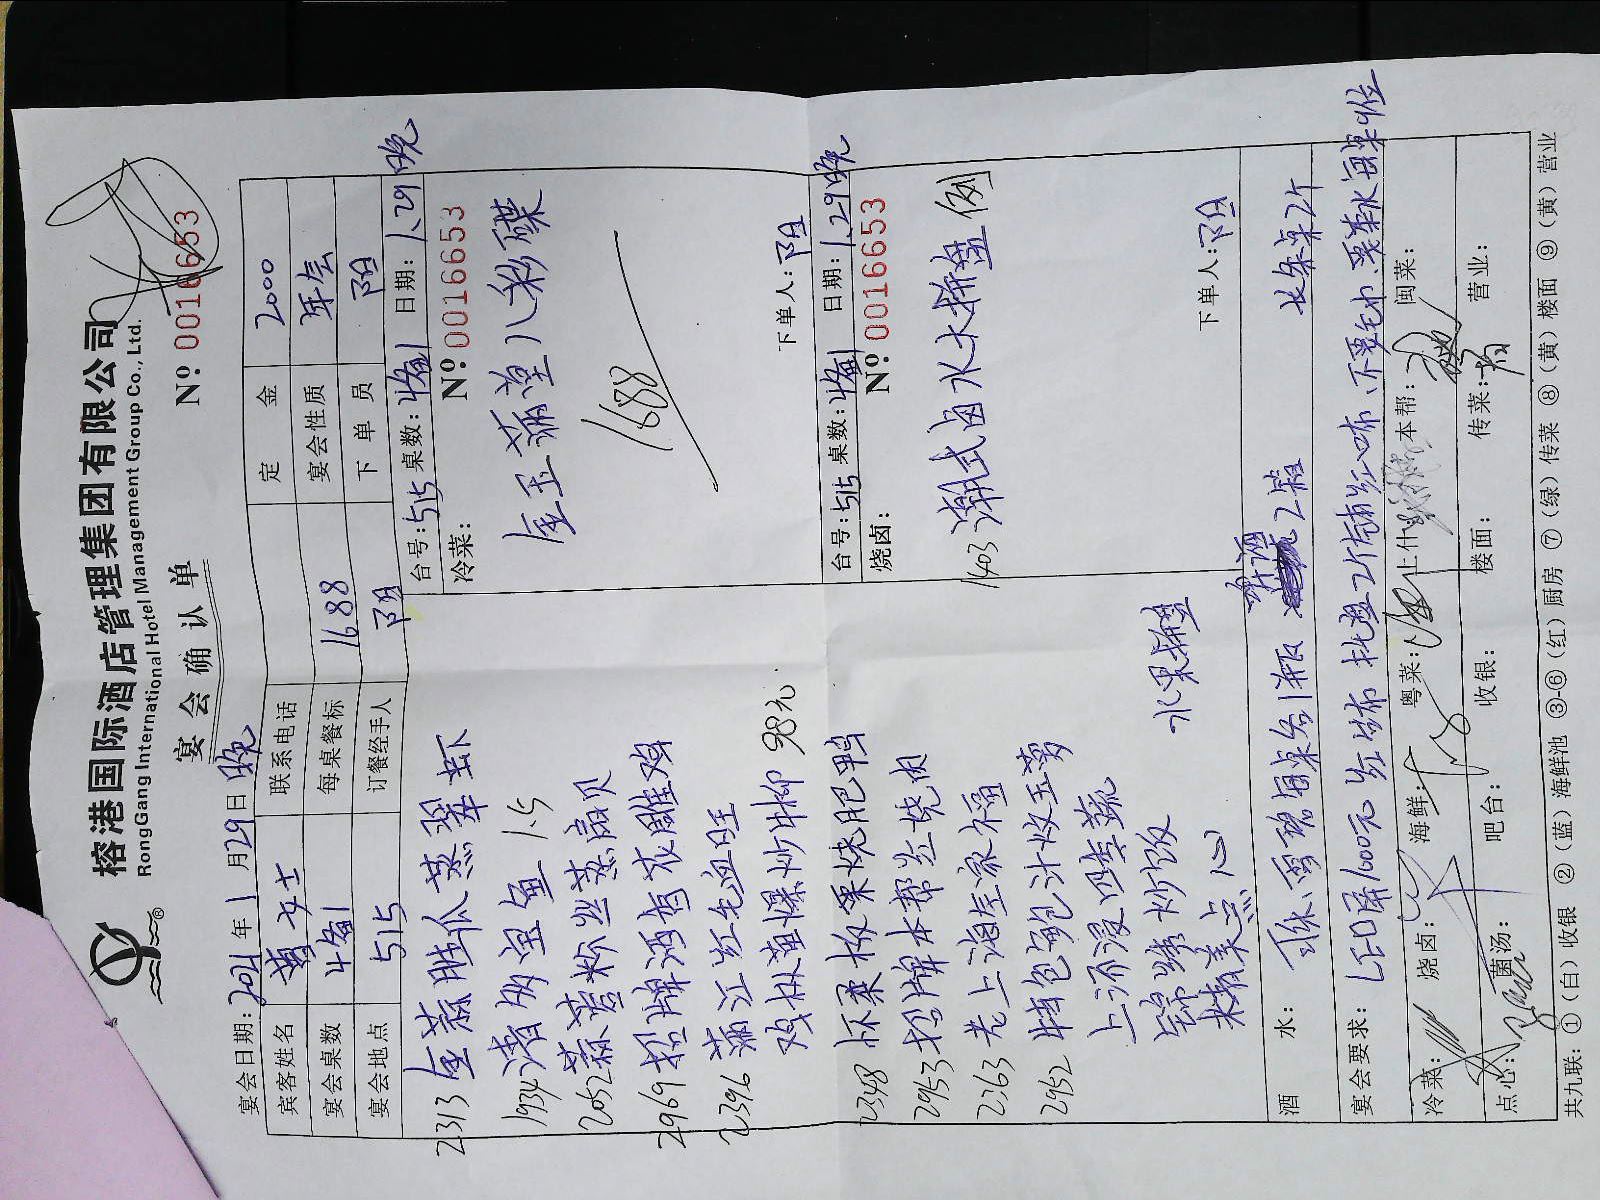 榕港国际酒店管理集团有限公司
RongGang International Hotel Management Group Co., Ltd.
宴会确认单
Nº 0016653
宴会日期: 2021年1月29日晚
宾客姓名 曹女士 联系电话 定金 2000
宴会桌数 4备1 每桌餐标 1688 宴会性质 年会
宴会地点 515 订餐经手人 阳 下单员 阳
2313 金蒜胜瓜蒸翠虾
1934 渚多宝鱼 1.5
2052 蒜蓉粉丝蒸扇贝
2969 招牌酒香花雕鸡
2396 蒲江红毛血旺
鸡枞菌爆炒柳 98元
2348 怀柔板栗烧肥鸭
2953 招牌本帮红烧肉
2363 老上海全家福
2952 特色鲍汁收玉萝
上汤浸四季蔬
金锦绣炒饭
精美点心
水果拼盘
台号:515 桌数:4备1 日期:1.29晚
冷菜:
Nº: 0016653
金玉满堂八彩碟
1688
下单人:阳
台号:515 桌数:4备1 日期:1.29晚
烧卤:
Nº: 0016653
1403 潮式卤水大拼盘 例
下单人:阳
酒水: 可乐、雪碧每桌各1瓶 2箱 长条桌2个
宴会要求: LED屏1000元 红布 托盘2个铺红布、不要毛巾、要茶水每桌1位
冷菜: 烧卤: 海鲜: 粤菜: 上什: 本帮: 闽菜:
点心: 菌汤: 吧台: 收银: 楼面: 传菜: 营业:
共九联: ①(白)收银 ②(蓝)海鲜池 ③-⑥(红)厨房 ⑦(绿)传菜 ⑧(黄)楼面 ⑨(黄)营业